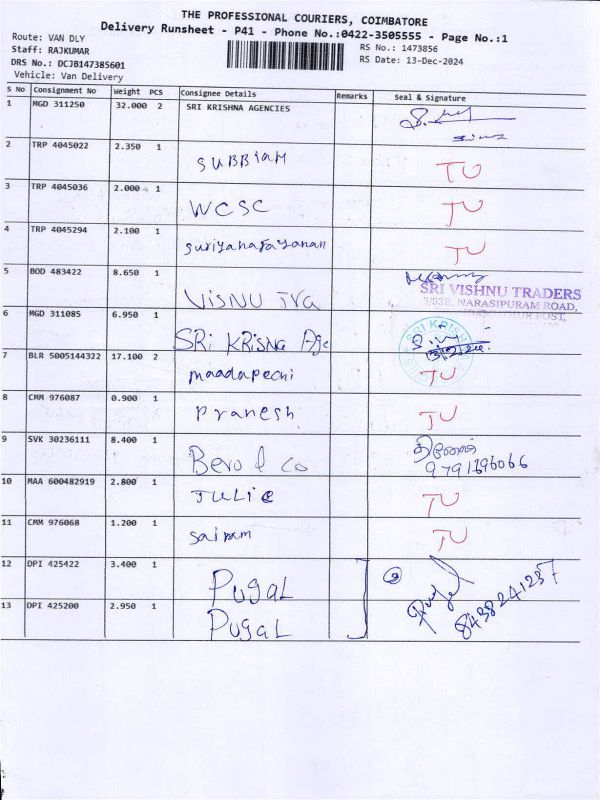 THE PROFESSIONAL COURIERS, COIMBATORE
Delivery Runsheet - P41 - Phone No.:0422-3505555 - Page No.:1
Route: VAN DLY
RS No.: 1473856
Staff: RAJKUMAR
RS Date: 13-Dec-2024
DRS No.: DCJB147385601
Vehicle: Van Delivery
S No Consignment No Weight PCS Consignee Details Remarks Seal & Signature
1 MGD 311250 32.000 2 SRI KRISHNA AGENCIES
2 TRP 4045022 2.350 1 SUBBIAH TU
3 TRP 4045036 2.000 1 WCSC TU
4 TRP 4045294 2.100 1 suriyanarayanan TU
5 BOD 483422 8.650 1 VISNU
SRI VISHNU TRADERS
3/93E, NARASIPURAM ROAD,
POST,
6 MGD 311085 6.950 1 SRI KRISNA Age
SRI KRISH
7 BLR 5005144322 17.100 2 maadapechi TU
8 CMM 976087 0.900 1 Pranesh TU
9 SVK 30236111 8.400 1 Bevo & co
9791196066
10 MAA 600482919 2.800 1 JULIE TU
11 CMM 976068 1.200 1 Sairam TU
12 DPI 425422 3.400 1 PUGAL 2
13 DPI 425200 2.950 1 PUGAL
8438241237